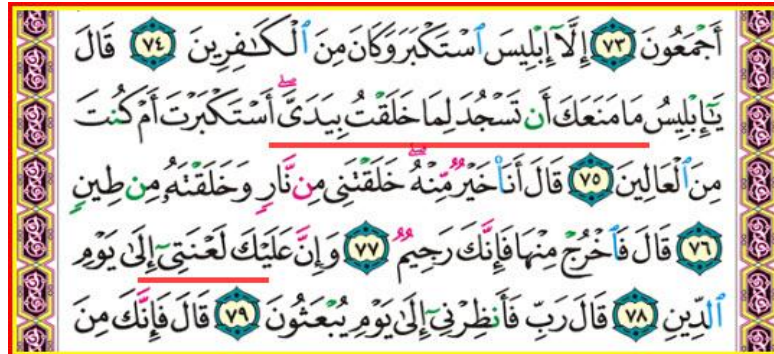 أَجْمَعُونَ ٧٣ إِلَّآ إِبْلِيسَ ٱسْتَكْبَرَ وَكَانَ مِنَ ٱلْكَـٰفِرِينَ ٧٤ قَالَ
يَـٰٓإِبْلِيسُ مَا مَنَعَكَ أَن تَسْجُدَ لِمَا خَلَقْتُ بِيَدَىَّ ۖ أَسْتَكْبَرْتَ أَمْ كُنتَ
مِنَ ٱلْعَالِينَ ٧٥ قَالَ أَنَا۠ خَيْرٌ مِّنْهُ ۖ خَلَقْتَنِى مِن نَّارٍ وَخَلَقْتَهُۥ مِن طِينٍ
٧٦ قَالَ فَٱخْرُجْ مِنْهَا فَإِنَّكَ رَجِيمٌ ٧٧ وَإِنَّ عَلَيْكَ لَعْنَتِىٓ إِلَىٰ يَوْمِ
ٱلدِّينِ ٧٨ قَالَ رَبِّ فَأَنظِرْنِىٓ إِلَىٰ يَوْمِ يُبْعَثُونَ ٧٩ قَالَ فَإِنَّكَ مِنَ